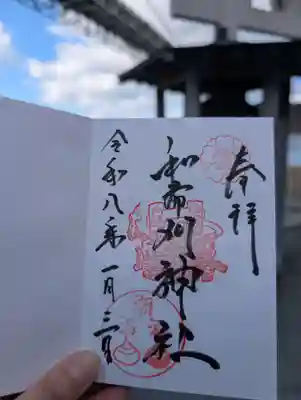 奉拝
和布刈神社
令和八年一月三日